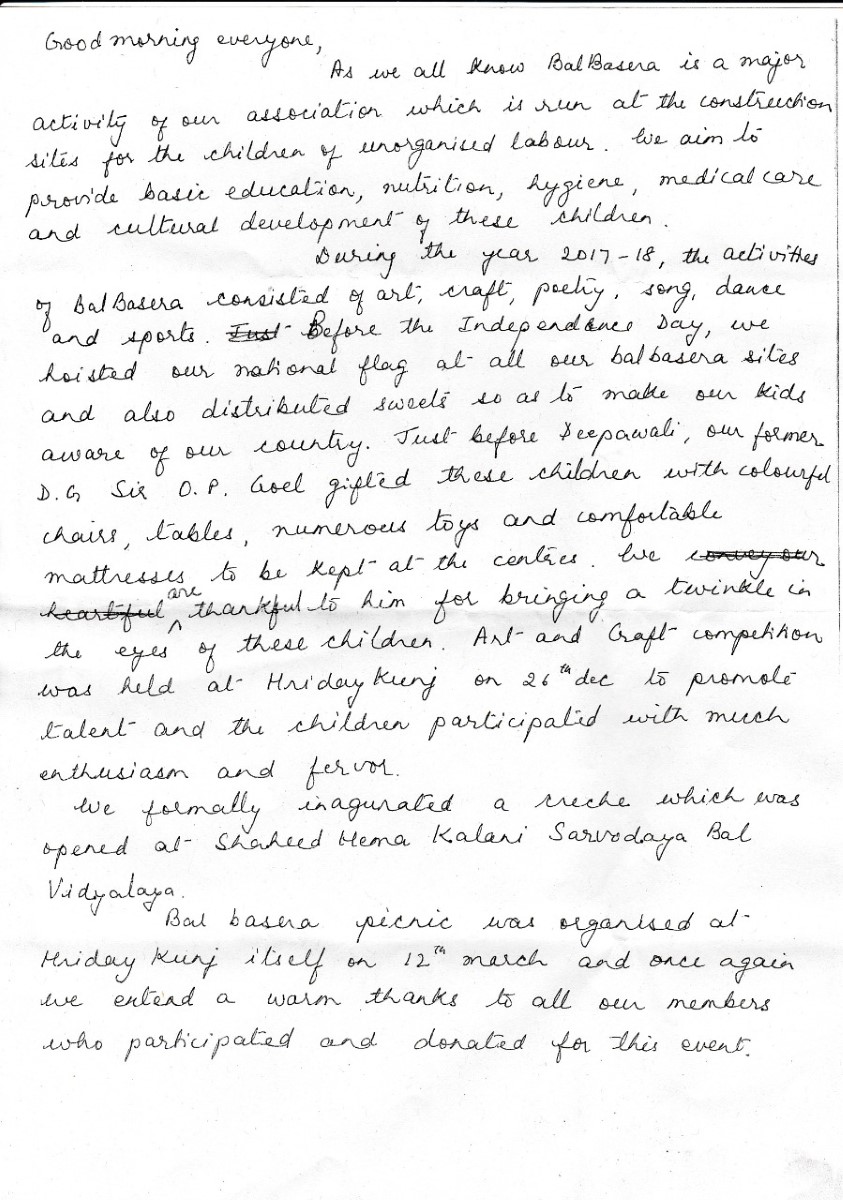 Good morning everyone,
As we all know BalBasera is a major
activity of our association which is run at the construction
sites for the children of unorganised labour. We aim to
provide basic education, nutrition, hygiene, medical care
and cultural development of these children.
During the year 2017-18, the activities
of BalBasera consisted of art, craft, poetry, song, dance
and sports. Just Before the Independence Day, we
hoisted our national flag at all our balbasera sites
and also distributed sweets so as to make our kids
aware of our country. Just before Deepawali, our former
D.G Sir O.P. Goel gifted these children with colourful
chairs, tables, numerous toys and comfortable
mattresses to be kept at the centres. We convey our
heartiful are thankful to him for bringing a twinkle in
the eyes of these children. Art and Craft competition
was held at Hriday Kunj on 26th dec to promote
talent and the children participated with much
enthusiasm and fervor.
We formally inagurated a creche which was
opened at Shaheed Hema Kalani Sarvodaya Bal
Vidyalaya.
Bal basera picnic was organised at
Hriday Kunj itself on 12th march and once again
we entend a warm thanks to all our members
who participated and donated for this event.